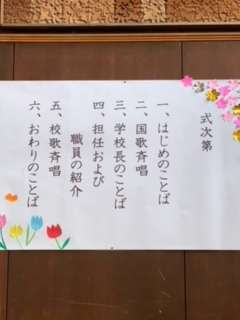 式次第
一、はじめのことば
二、国歌斉唱
三、学校長のことば
四、担任および
職員の紹介
五、校歌斉唱
六、おわりのことば